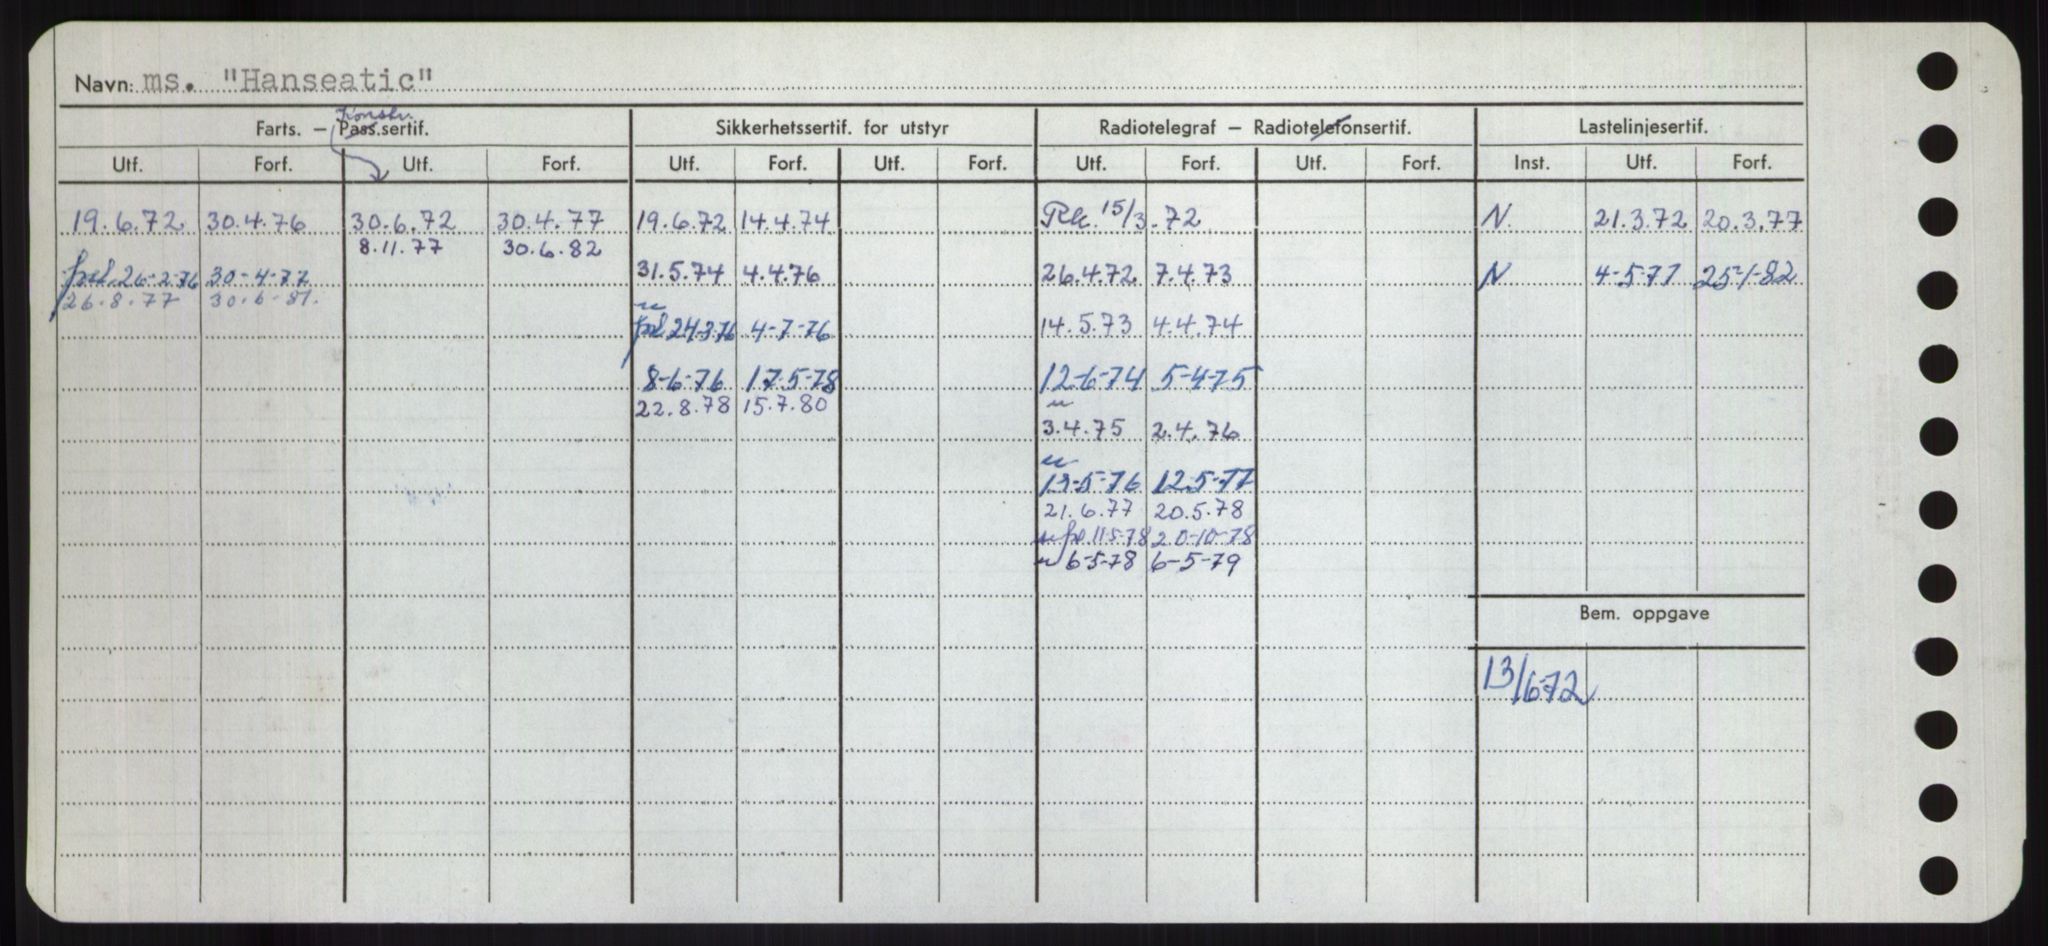 Navn: ms. "Hanseatic"
Konstr.
Farts. – Pass.sertif. Sikkerhetssertif. for utstyr Radiotelegraf – Radiotelefonsertif. Lastelinjesertif.
Utf. Forf. Utf. Forf. Utf. Forf. Utf. Forf. Utf. Forf. Utf. Forf. Inst. Utf. Forf.
19.6.72. 30.4.76 30.6.72 30.4.77 19.6.72 14.4.74 Rk. 15/3.72 N. 21.3.72 20.3.77
8.11.77 30.6.82
26-2-76 30-4-77 31.5.74 4.4.76 26.4.72 7.4.73 N 4-5-77 25-1-82
26.8.77 30-6-81.
24-3-76 4-7-76 14.5.73 4.4.74
8-6-76 17-5-78 12-6-74 5-4-75
22.8.78 15.7.80
3.4.75 2.4.76
13-5-76 12-5-77
21.6.77 20.5.78
11-5-78 20-10-78
6-5-78 6-5-79
Bem. oppgave
13/6-72